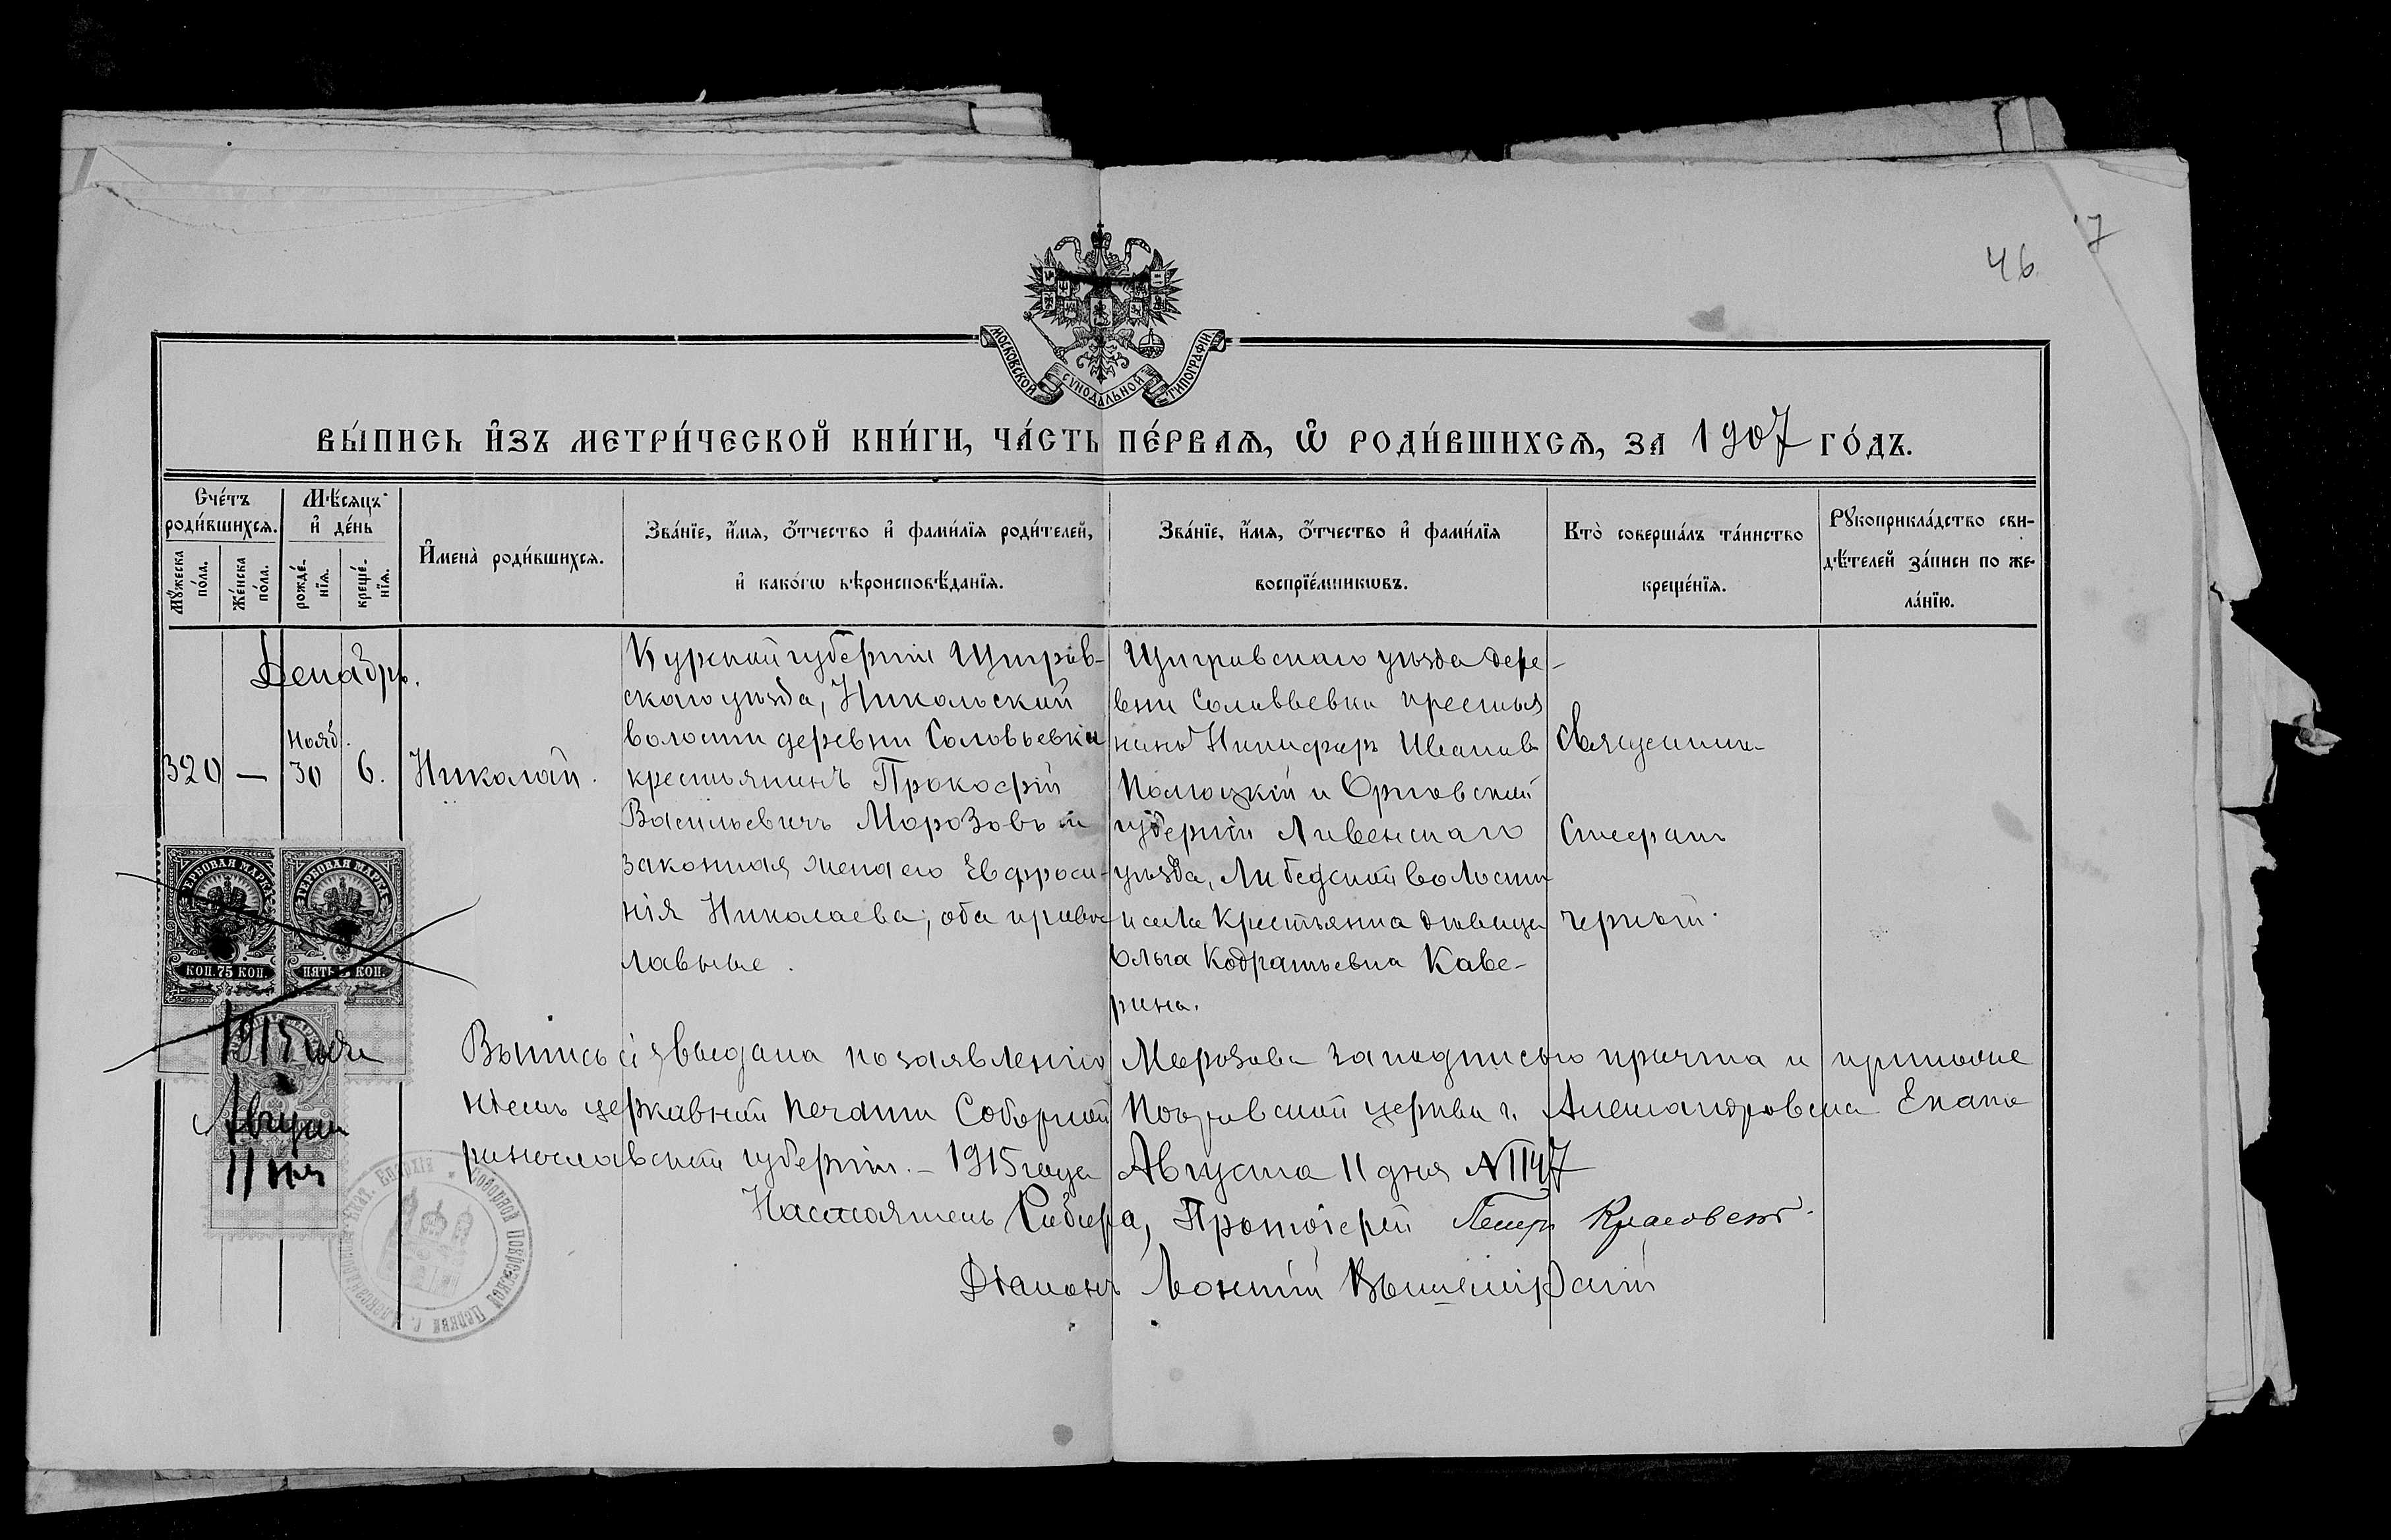 46 7
МОСКОВСКОЙ СѴНОДАЛЬНОЙ ТИПОГРАФІИ.
ВЫ́ПИСЬ И҆ЗЪ МЕТРИ́ЧЕСКОЙ КНИ́ГИ, ЧА́СТЬ ПЕ́РВАѦ, Ѽ РОДИ́ВШИХСѦ, ЗА 1907 ГО́ДЪ.
Сче́тъ роди́вшихсѧ.
Мꙋ́жеска по́ла.
Же́нска по́ла.
Мѣ́сяцъ и҆ де́нь
рожде́нїѧ.
креще́нїѧ.
И҆мена̀ роди́вшихсѧ.
Зва́нїе, и҆́мѧ, ѻ҆́тчество и҆ фами́лїѧ роди́телей,
и҆ како́гѡ вѣроисповѣ́данїѧ.
Зва́нїе, и҆́мѧ, ѻ҆́тчество и҆ фами́лїѧ
воспрїе́мникѡвъ.
Кто̀ соверша́лъ та́инство
креще́нїѧ.
Рꙋкоприкла́дство сви-
дѣ́телей за́писи по же-
ла́нїю.
Декабрь.
320 — Нояб. 30 6. Николай.
Курской губерніи Щигров-
скаго уѣзда, Никольской
волости деревни Соловьевки
крестьянинъ Прокофій
Васильевичъ Морозовъ и
законная жена его Евфроси-
нія Николаева, оба право
лавные.
Щигровскаго уѣзда дере-
вни Соловьевки крестья
нинъ Никифоръ Ивановъ
и Орловской
губерніи Ливенскаго
уѣзда, волости
и села Крестьянка дѣвица
Ольга Кодратьевна Каве-
рина.
Священникъ
Стефанъ
Черный.
ГЕРБОВАЯ МАРКА
КОП. 75 КОП.
ГЕРБОВАЯ МАРКА
ПЯТЬ 5 КОП.
1915 года
Августа
11 дня
Выпись сія выдана по заявленію Морозова за подписью причта и приложе
ніемъ церковной печати Соборной Покровской церкви г. Александровска Екате
ринославской губерніи. – 1915 года Августа 11 дня №1147
Настоятель Собора, Протоіерей Петръ
Діаконъ
Екат. Епархія * Соборной Покровской Церкви г. Александровска